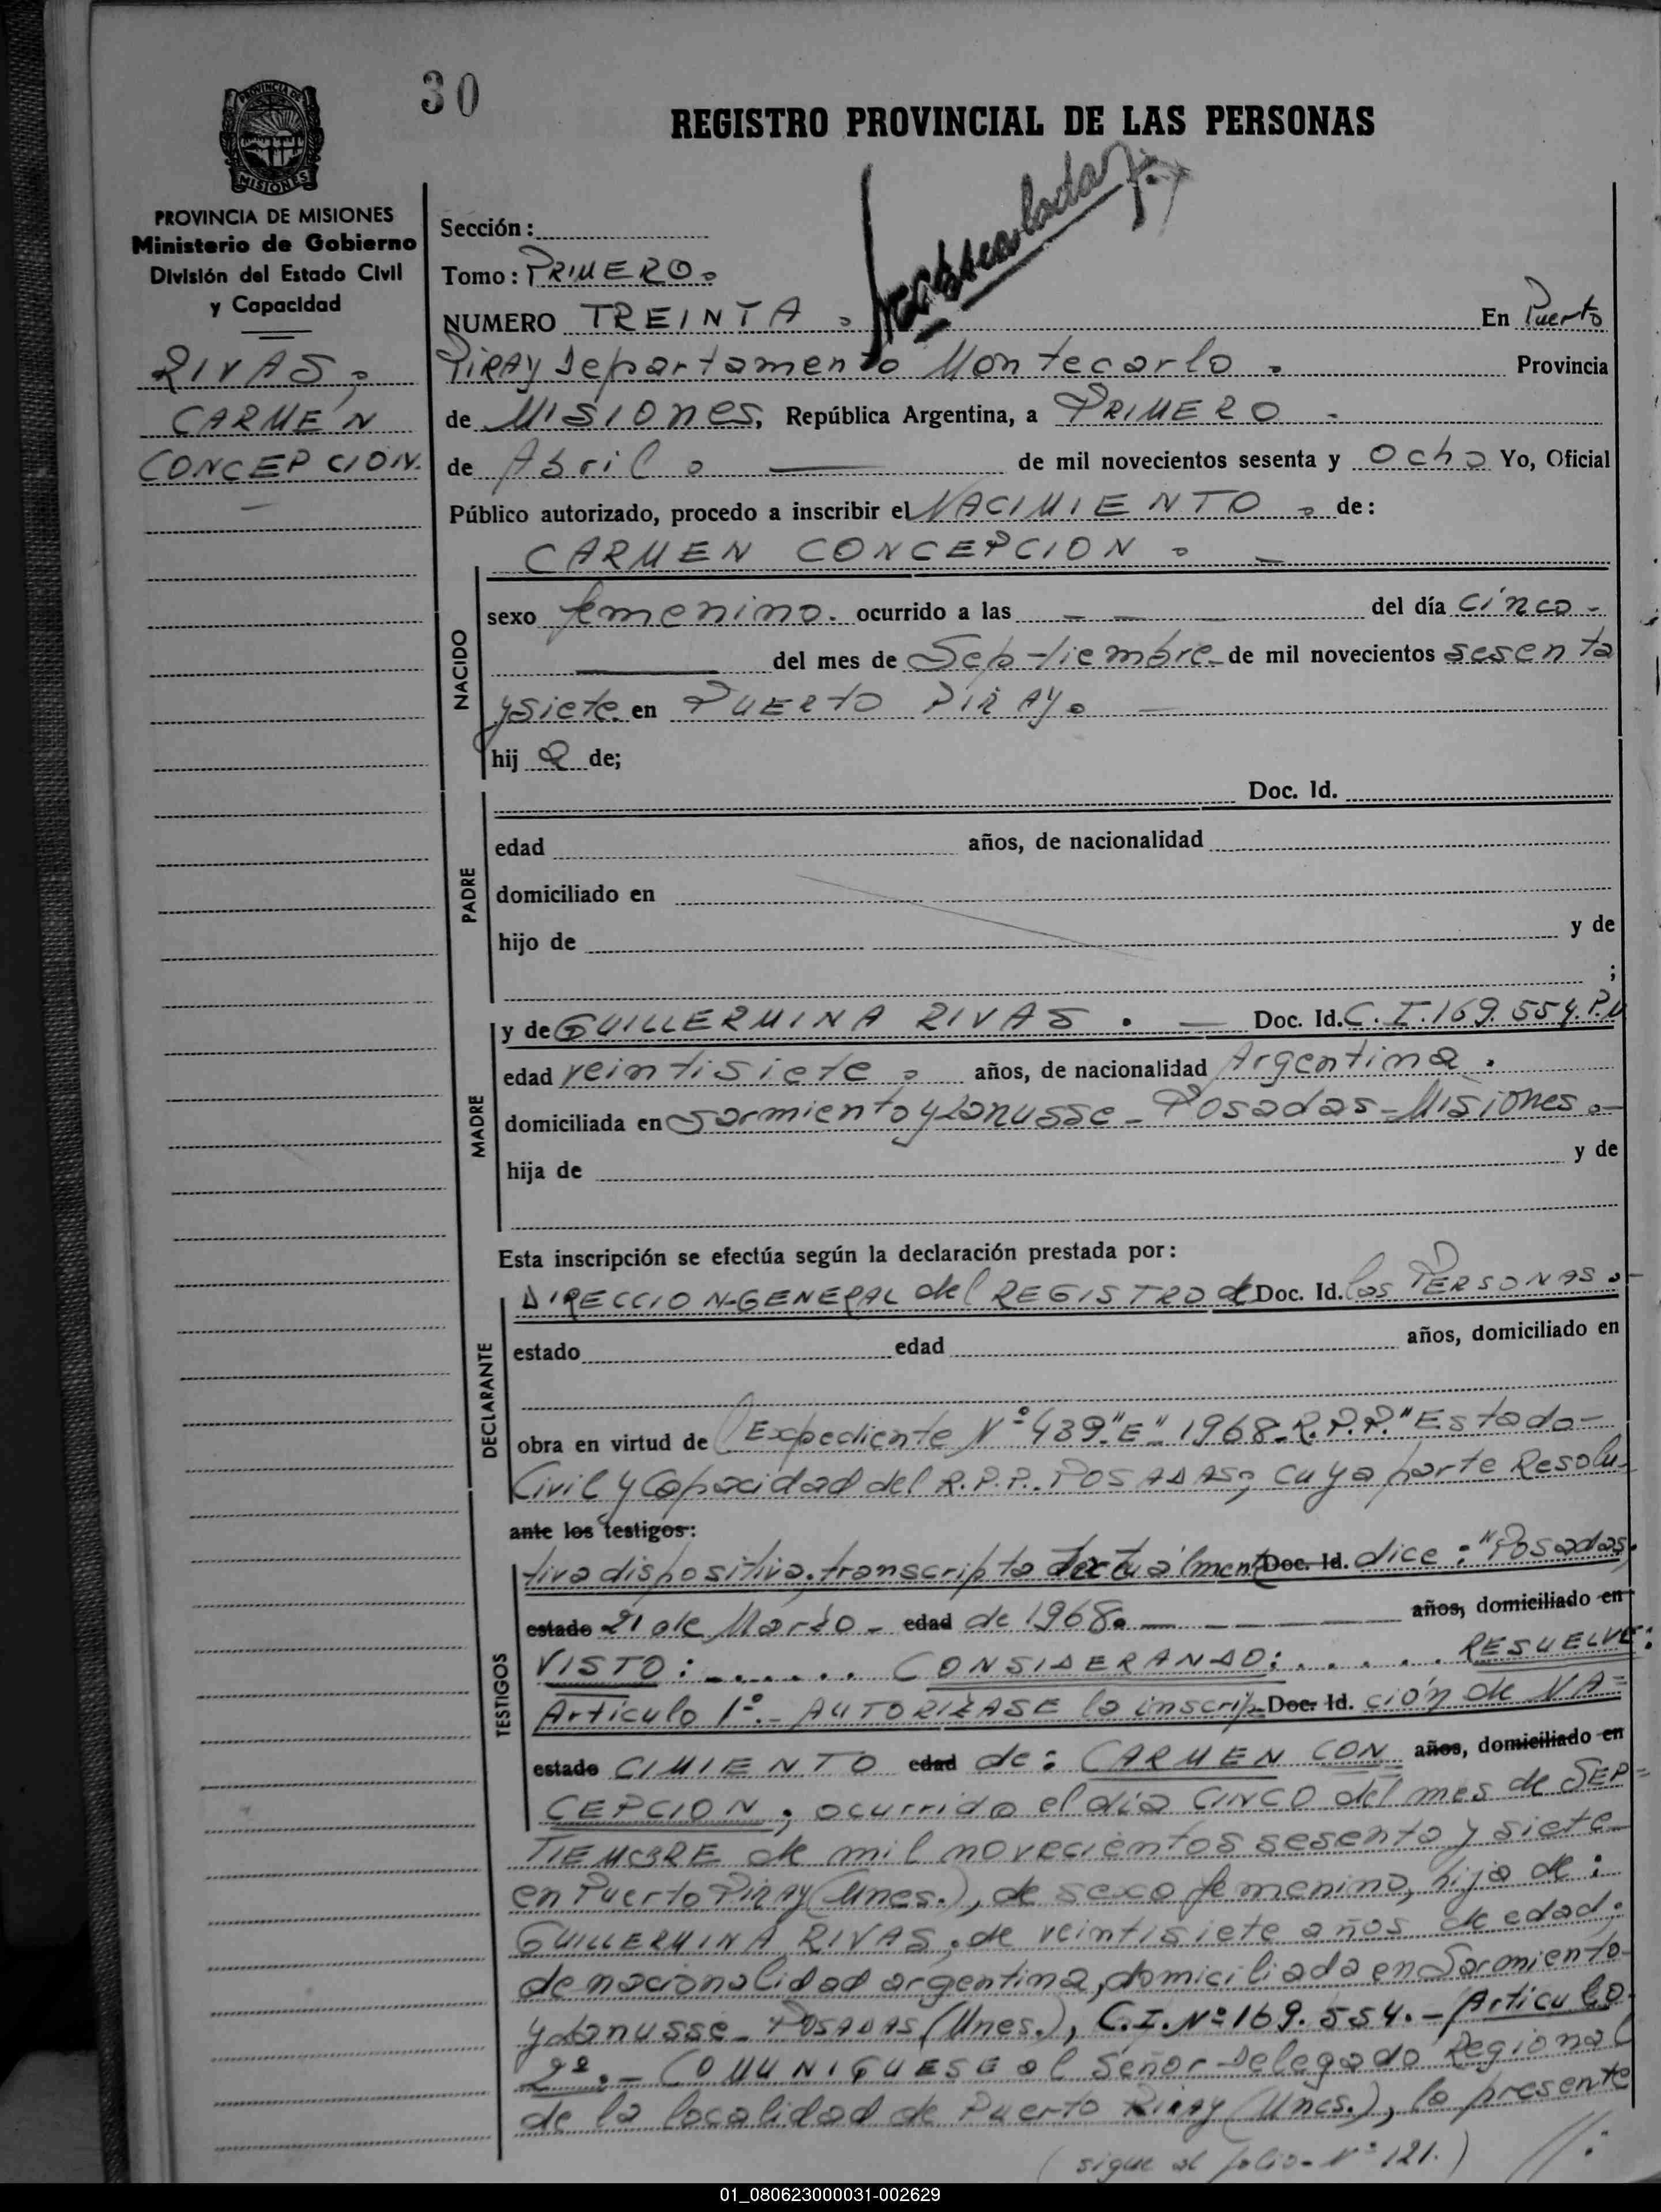 30
REGISTRO PROVINCIAL DE LAS PERSONAS
PROVINCIA DE MISIONES
PROVINCIA DE MISIONES
Ministerio de Gobierno
División del Estado Civil
y Capacidad
RIVAS,
CARMEN
CONCEPCION.
Sección:
Tomo: PRIMERO.
NUMERO TREINTA. En Puerto
PIRAY Departamento Montecarlo. Provincia
de MISIONES, República Argentina, a PRIMERO
de Abril. de mil novecientos sesenta y Ocho Yo, Oficial
Público autorizado, procedo a inscribir el NACIMIENTO. de:
CARMEN CONCEPCION. -
NACIDO
sexo femenino. ocurrido a las - - - del día cinco -
del mes de Septiembre de mil novecientos sesenta
y siete. en PUERTO PIRAY.
hij a de;
PADRE
Doc. Id.
edad años, de nacionalidad
domiciliado en
hijo de y de
;
MADRE
y de GUILLERMINA RIVAS. - Doc. Id. C.I. 169.554.
edad veintisiete. años, de nacionalidad Argentina.
domiciliada en Sarmiento y Lanusse - Posadas - Misiones.-
hija de y de
Esta inscripción se efectúa según la declaración prestada por:
DECLARANTE
DIRECCION-GENERAL del REGISTRO de Doc. Id. las PERSONAS.-
estado edad años, domiciliado en
obra en virtud de Expediente Nº 439."E" 1968-R.P.P." Estado-
Civil y Capacidad del R.P.P. POSADAS; cuya parte Resolu-
ante los testigos:
TESTIGOS
tiva dispositiva, transcripta textualment Doc. Id. dice: "Posadas,
estado 21 de Marzo - edad de 1968. - años, domiciliado en
VISTO: ...... CONSIDERANDO: ...... RESUELVE:
Artículo 1º.- AUTORIZASE la inscrip- Doc. Id. ción de NA=
estado CIMIENTO edad de: CARMEN CON= años, domiciliado en
CEPCION, ocurrido el día CINCO del mes de SEP=
TIEMBRE de mil novecientos sesenta y siete
en Puerto Piray (Mnes.), de sexo femenino, hija de:
GUILLERMINA RIVAS, de veintisiete años de edad,
de nacionalidad argentina, domiciliada en Sarmiento
y Lanusse - POSADAS (Mnes.), C.I. Nº 169.554.- Articulo
2º.- COMUNIQUESE al Señor Delegado Regional
de la localidad de Puerto Piray (Mnes.), la presente
(sigue al folio - Nº 121.) //:
01_080623000031-002629